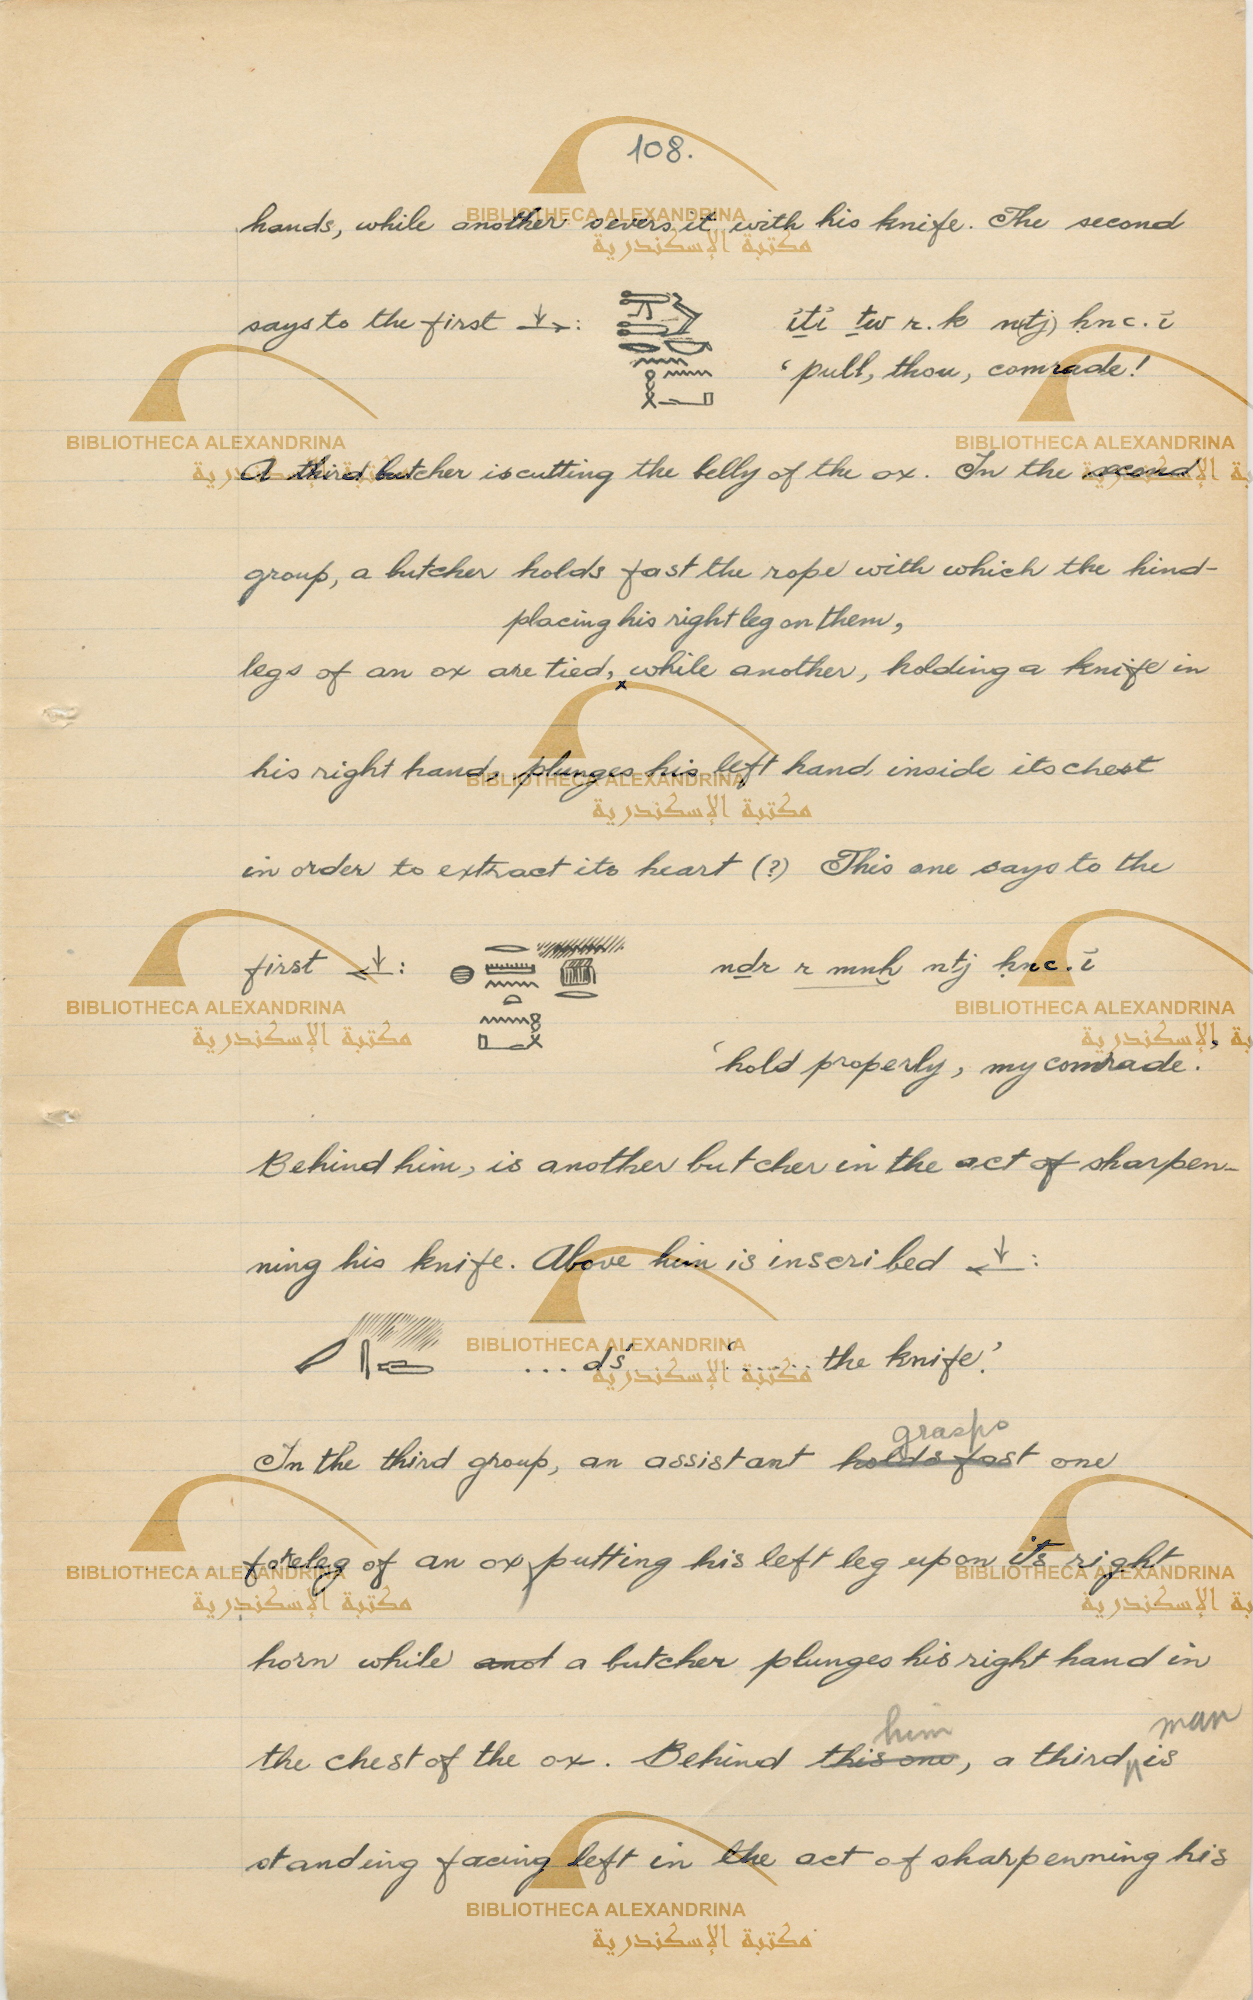 108.
hands, while another severs it with his knife. The second
says to the first : ỉtỉ ṯw r.k n(tj) ḥnc.ỉ
‘pull, thou, comrade!
A third butcher is cutting the belly of the ox. In the second
group, a butcher holds fast the rope with which the hind-
placing his right leg on them,
legs of an ox are tied, x while another, holding a knife in
his right hand, plunges his left hand inside its chest
in order to extract its heart (?) This one says to the
first : nḏr r mnḫ ntj ḥnc.ỉ
‘hold properly, my comrade.’
Behind him, is another butcher in the act of sharpen-
ning his knife. Above him is inscribed :
... dś ‘...... the knife.’
grasps
In the third group, an assistant holds fast one
foreleg of an ox, putting his left leg upon its right
horn while anot a butcher plunges his right hand in
him man
the chest of the ox. Behind this one, a third is
standing facing left in the act of sharpenning his
BIBLIOTHECA ALEXANDRINA
مكتبة الإسكندرية